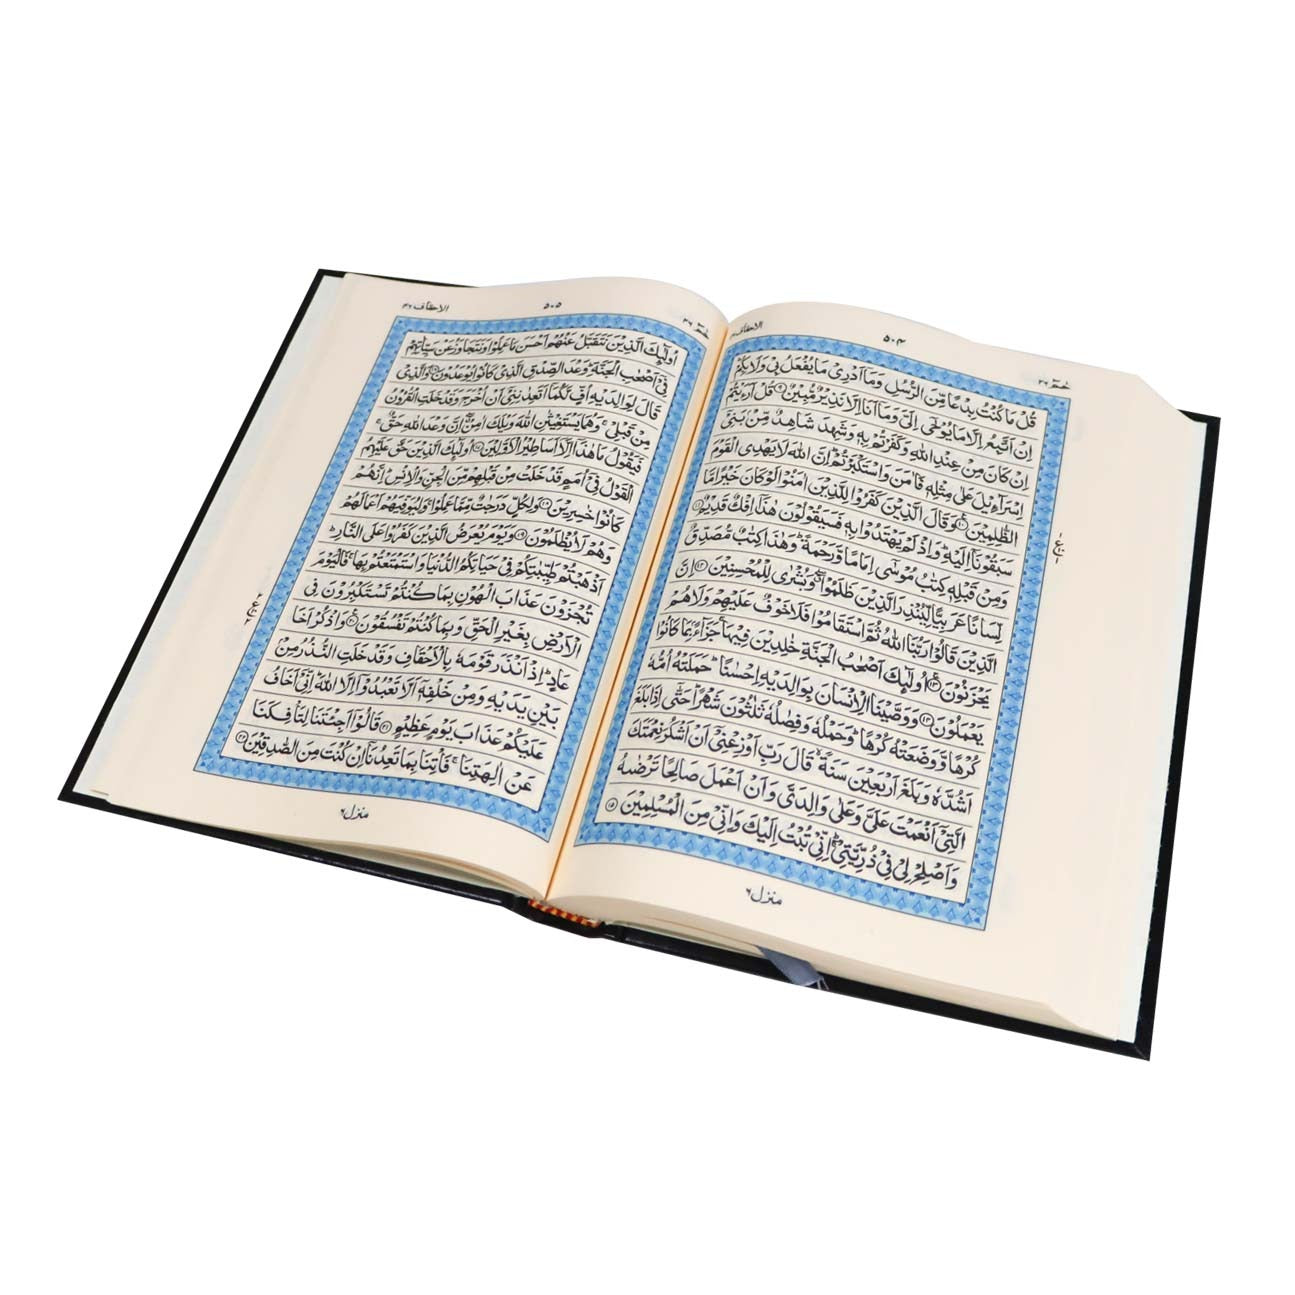 حٰمٓ ٢٦
٥٠٤
الاحقاف ٤٦
قُلْ مَا كُنْتُ بِدْعًا مِّنَ الرُّسُلِ وَمَاۤ اَدْرِيْ مَا يُفْعَلُ بِيْ وَلَا بِكُمْ
اِنْ اَتَّبِعُ اِلَّا مَا يُوْحٰۤى اِلَيَّ وَمَاۤ اَنَا اِلَّا نَذِيْرٌ مُّبِيْنٌ ۹ قُلْ اَرَءَيْتُمْ
اِنْ كَانَ مِنْ عِنْدِ اللّٰهِ وَكَفَرْتُمْ بِهٖ وَشَهِدَ شَاهِدٌ مِّنْۢ بَنِيْۤ
اِسْرَآءِيْلَ عَلٰى مِثْلِهٖ فَاٰمَنَ وَاسْتَكْبَرْتُمْ ؕ اِنَّ اللّٰهَ لَا يَهْدِي الْقَوْمَ
الظّٰلِمِيْنَ ۱۰ وَقَالَ الَّذِيْنَ كَفَرُوْا لِلَّذِيْنَ اٰمَنُوْا لَوْ كَانَ خَيْرًا مَّا
سَبَقُوْنَاۤ اِلَيْهِ ؕ وَاِذْ لَمْ يَهْتَدُوْا بِهٖ فَسَيَقُوْلُوْنَ هٰذَاۤ اِفْكٌ قَدِيْمٌ ۱۱
وَمِنْ قَبْلِهٖ كِتٰبُ مُوْسٰۤى اِمَامًا وَّرَحْمَةً ؕ وَهٰذَا كِتٰبٌ مُّصَدِّقٌ
لِّسَانًا عَرَبِيًّا لِّيُنْذِرَ الَّذِيْنَ ظَلَمُوْا ۖ وَبُشْرٰى لِلْمُحْسِنِيْنَ ۱۲ اِنَّ
الَّذِيْنَ قَالُوْا رَبُّنَا اللّٰهُ ثُمَّ اسْتَقَامُوْا فَلَا خَوْفٌ عَلَيْهِمْ وَلَا هُمْ
يَحْزَنُوْنَ ۱۳ اُولٰٓئِكَ اَصْحٰبُ الْجَنَّةِ خٰلِدِيْنَ فِيْهَا ۚ جَزَآءًۢ بِمَا كَانُوْا
يَعْمَلُوْنَ ۱۴ وَوَصَّيْنَا الْاِنْسَانَ بِوَالِدَيْهِ اِحْسٰنًا ؕ حَمَلَتْهُ اُمُّهٗ
كُرْهًا وَّوَضَعَتْهُ كُرْهًا ؕ وَحَمْلُهٗ وَفِصٰلُهٗ ثَلٰثُوْنَ شَهْرًا ؕ حَتّٰۤى اِذَا بَلَغَ
اَشُدَّهٗ وَبَلَغَ اَرْبَعِيْنَ سَنَةً ۙ قَالَ رَبِّ اَوْزِعْنِيْۤ اَنْ اَشْكُرَ نِعْمَتَكَ
الَّتِيْۤ اَنْعَمْتَ عَلَيَّ وَعَلٰى وَالِدَيَّ وَاَنْ اَعْمَلَ صَالِحًا تَرْضٰىهُ
وَاَصْلِحْ لِيْ فِيْ ذُرِّيَّتِيْ ؕ اِنِّيْ تُبْتُ اِلَيْكَ وَاِنِّيْ مِنَ الْمُسْلِمِيْنَ ۱۵
منزل ٦
حٰمٓ ٢٦
٥٠٥
الاحقاف ٤٦
اُولٰٓئِكَ الَّذِيْنَ نَتَقَبَّلُ عَنْهُمْ اَحْسَنَ مَا عَمِلُوْا وَنَتَجَاوَزُ عَنْ سَيِّاٰتِهِمْ
فِيْۤ اَصْحٰبِ الْجَنَّةِ ؕ وَعْدَ الصِّدْقِ الَّذِيْ كَانُوْا يُوْعَدُوْنَ ۱۶ وَالَّذِيْ
قَالَ لِوَالِدَيْهِ اُفٍّ لَّكُمَاۤ اَتَعِدٰنِنِيْۤ اَنْ اُخْرَجَ وَقَدْ خَلَتِ الْقُرُوْنُ
مِنْ قَبْلِيْ ۚ وَهُمَا يَسْتَغِيْثٰنِ اللّٰهَ وَيْلَكَ اٰمِنْ ۖ اِنَّ وَعْدَ اللّٰهِ حَقٌّ ۖ
فَيَقُوْلُ مَا هٰذَاۤ اِلَّاۤ اَسَاطِيْرُ الْاَوَّلِيْنَ ۱۷ اُولٰٓئِكَ الَّذِيْنَ حَقَّ عَلَيْهِمُ
الْقَوْلُ فِيْۤ اُمَمٍ قَدْ خَلَتْ مِنْ قَبْلِهِمْ مِّنَ الْجِنِّ وَالْاِنْسِ ؕ اِنَّهُمْ
كَانُوْا خٰسِرِيْنَ ۱۸ وَلِكُلٍّ دَرَجٰتٌ مِّمَّا عَمِلُوْا ۚ وَلِيُوَفِّيَهُمْ اَعْمَالَهُمْ
وَهُمْ لَا يُظْلَمُوْنَ ۱۹ وَيَوْمَ يُعْرَضُ الَّذِيْنَ كَفَرُوْا عَلَى النَّارِ ؕ
اَذْهَبْتُمْ طَيِّبٰتِكُمْ فِيْ حَيَاتِكُمُ الدُّنْيَا وَاسْتَمْتَعْتُمْ بِهَا ۚ فَالْيَوْمَ
تُجْزَوْنَ عَذَابَ الْهُوْنِ بِمَا كُنْتُمْ تَسْتَكْبِرُوْنَ فِي
الْاَرْضِ بِغَيْرِ الْحَقِّ وَبِمَا كُنْتُمْ تَفْسُقُوْنَ ۲۰ وَاذْكُرْ اَخَا
عَادٍ ؕ اِذْ اَنْذَرَ قَوْمَهٗ بِالْاَحْقَافِ وَقَدْ خَلَتِ النُّذُرُ مِنْۢ
بَيْنِ يَدَيْهِ وَمِنْ خَلْفِهٖۤ اَلَّا تَعْبُدُوْۤا اِلَّا اللّٰهَ ؕ اِنِّيْۤ اَخَافُ
عَلَيْكُمْ عَذَابَ يَوْمٍ عَظِيْمٍ ۲۱ قَالُوْۤا اَجِئْتَنَا لِتَاْفِكَنَا
عَنْ اٰلِهَتِنَا ۚ فَاْتِنَا بِمَا تَعِدُنَاۤ اِنْ كُنْتَ مِنَ الصّٰدِقِيْنَ ۲۲
منزل ٦